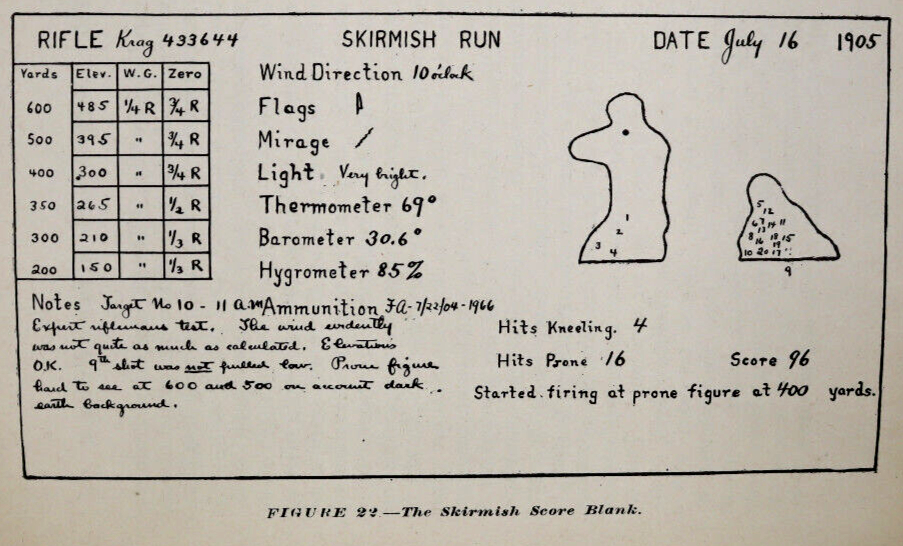 RIFLE Krag 433644 SKIRMISH RUN DATE July 16 1905
Yards Elev. W.G. Zero
600 485 1/4 R 3/4 R
500 395 " 3/4 R
400 300 " 3/4 R
350 265 " 1/2 R
300 210 " 1/3 R
200 150 " 1/3 R
Wind Direction 10 o'clock
Flags
Mirage
Light Very bright.
Thermometer 69°
Barometer 30.6°
Hygrometer 85%
1
2
3
4
5
12
6 7 14 11
13
8 16 18 15
19
10 20 17
9
Notes Target No 10 - 11 a.m. Ammunition FA-7/22/04-1966
Expert rifleman's test. The wind evidently
was not quite as much as calculated. Elevations
O.K. 9th shot was not pulled low. Prone figure
hard to see at 600 and 500 on account dark
earth background.
Hits Kneeling. 4
Hits Prone 16 Score 96
Started firing at prone figure at 400 yards.
FIGURE 22—The Skirmish Score Blank.